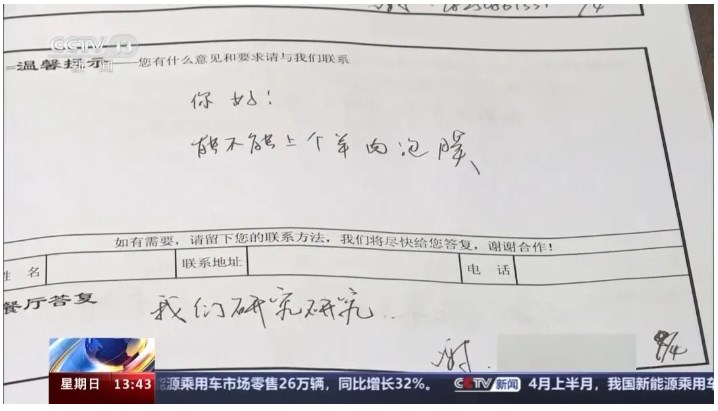 CCTV 13
新闻
温馨提示——您有什么意见和要求请与我们联系
你好！
能不能上个羊肉泡膜
如有需要，请留下您的联系方法，我们将尽快给您答复，谢谢合作！
姓 名
联系地址
电 话
餐厅答复
我们研究研究..
/4
星期日 13:43
能源乘用车市场零售26万辆，同比增长32%。 CCTV 新闻 4月上半月，我国新能源乘用车